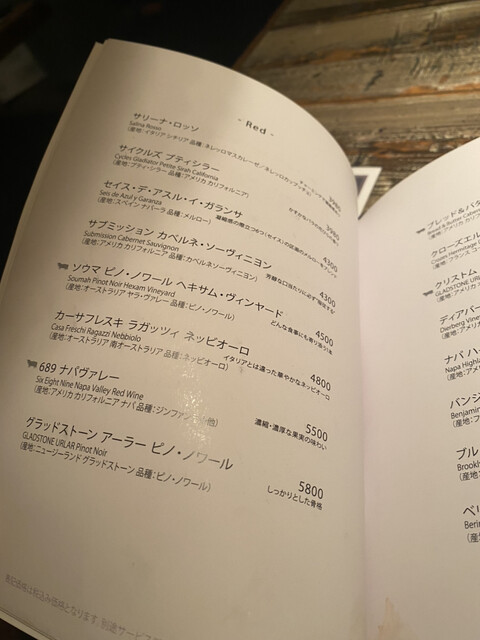 - Red -
サリーナ・ロッソ
Salina Rosso
3980
サイクルズ プティシラー
Cycles Gladiator Petite Sirah California
(産地:アメリカ カリフォルニア)
3980
セイス・デ・アスル・イ・ガランサ
Seis de Azul y Garanza
(産地:スペイン ナバーラ 品種:メルロー)
4300
サブミッション カベルネ・ソーヴィニヨン
Submission Cabernet Sauvignon
(産地:アメリカ カリフォルニア 品種:カベルネソーヴィニヨン)
4300
ソウマ ピノ・ノワール ヘキサム・ヴィンヤード
Soumah Pinot Noir Hexam Vineyard
(産地:オーストラリア ヤラ・ヴァレー 品種:ピノ・ノワール)
4500
どんな食事にも寄り添う1本
カーサフレスキ ラガッツィ ネッビオーロ
Casa Freschi Ragazzi Nebbiolo
(産地:オーストラリア 南オーストラリア 品種:ネッビオーロ)
4800
イタリアとは違った華やかなネッビオーロ
689 ナパヴァレー
Six Eight Nine Napa Valley Red Wine
(産地:アメリカ カリフォルニア ナパ 品種:ジンファンデル他)
5500
濃縮・濃厚な果実の味わい
グラッドストーン アーラー ピノ・ノワール
GLADSTONE URLAR Pinot Noir
(産地:ニュージーランド グラッドストーン 品種:ピノ・ノワール)
5800
しっかりとした骨格
表記価格は税込み価格となります。別途サービス
ブレッド&バタ
クローズエル
クリストム
GLADSTONE UR
ディアバー
Dierberg Vine
ナパ ハ
Napa Highl
バンジ
Benjamin
ブル
Brookl
ベリ
Berin